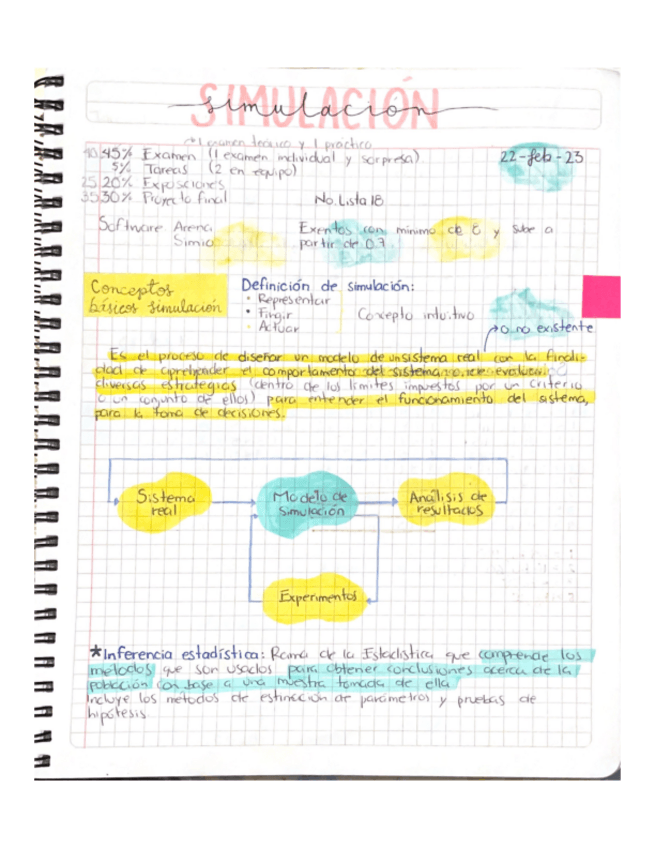 SIMULACIÓN
simulación
→ 1 examen teórico y 1 práctico
40 45% Examen (1 examen individual y sorpresa)
22-feb-23
5% Tareas (2 en equipo)
25 20% Exposiciones
35 30% Proyecto final
No. Lista 18
Software Arena
Simio
Exentos con mínimo de 8 y sube a
partir de 0.7
Conceptos
básicos simulación
Definición de simulación:
• Representar
• Fingir
• Actuar
Concepto intuitivo
o no existente
Es el proceso de diseñar un modelo de un sistema real con la finali-
dad de aprehender el comportamiento del sistema evaluar
diversas estrategias (dentro de los límites impuestos por un criterio
o un conjunto de ellos) para entender el funcionamiento del sistema,
para la toma de decisiones.
Sistema
real
Modelo de
simulación
Análisis de
resultados
Experimentos
*Inferencia estadística: Rama de la Estadística que comprende los
métodos que son usados para obtener conclusiones acerca de la
población con base a una muestra tomada de ella
Incluye los métodos de estimación de parámetros y pruebas de
hipótesis